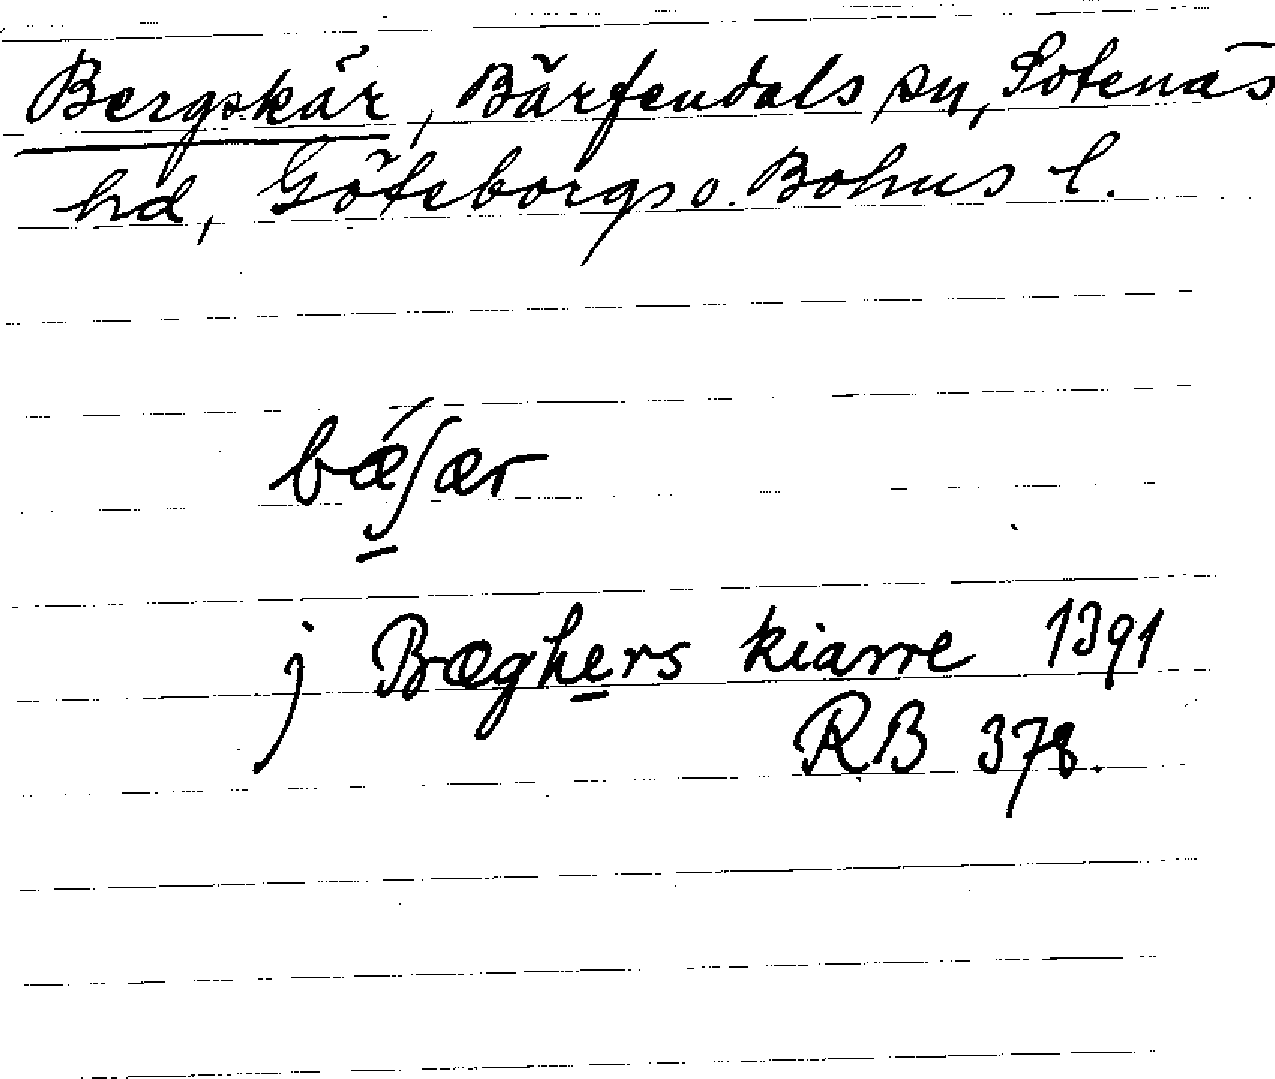 Bergskär, Bärfendals sn, Sotenäs
hd, Göteborgs o. Bohus l.
bǽʃær
j Bæghers kiarre 1391
RB 378.